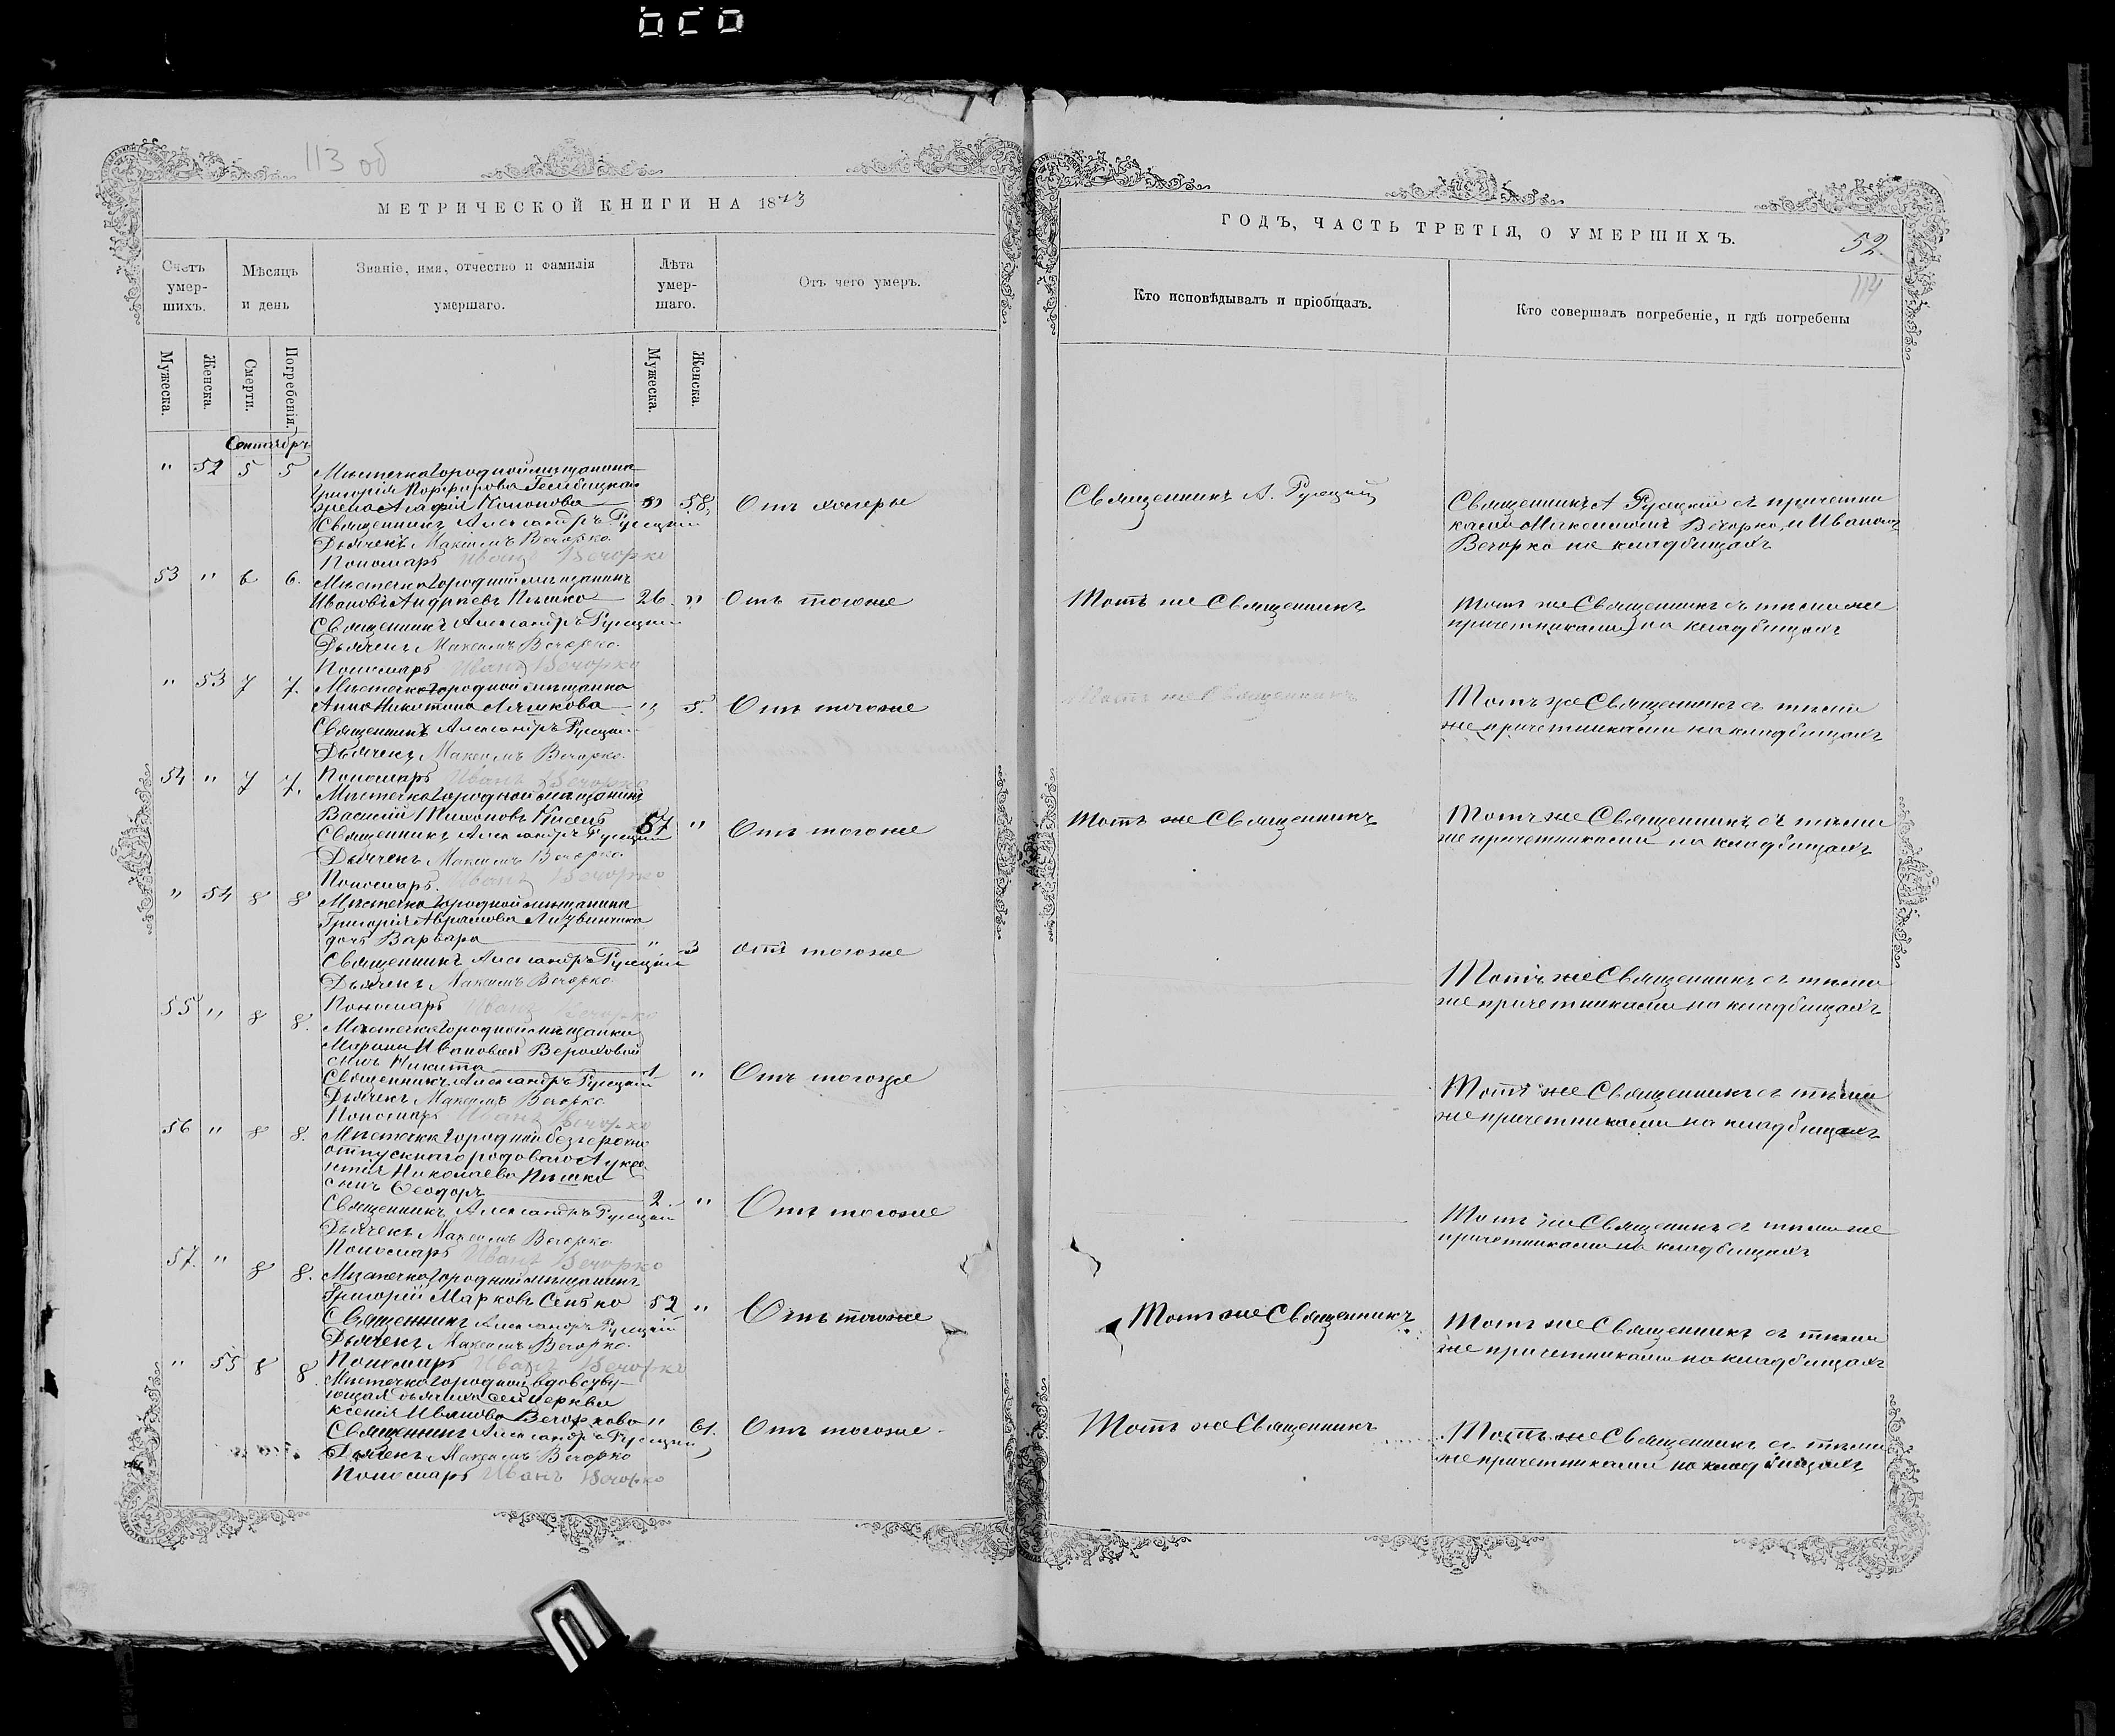 113 об
МЕТРИЧЕСКОЙ КНИГИ НА 1873
Счетъ умер-шихъ.
Мѣсяцъ и день
Званіе, имя, отчество и фамилія умершаго.
Лѣта умер-шаго.
Отъ чего умеръ.
Мужеска.
Женска.
Смерти.
Погребенія.
Мужеска.
Женска.
Сентябрь
" 52 5 5 Мѣстечка Городной мѣщанина
Григорія Порфирова
жена Агафія Кононова " 58. Отъ холеры
Священникъ Александръ Ружицкій
Дьячекъ Максимъ Вечорко
Пономарь Иванъ Вечорко
53 " 6 6. Мѣстечка Городной мѣщанинъ
Ивановъ Андреевъ Пѣшко 26. " Отъ тогоже
Священникъ Александръ Ружицкій
Дьячекъ Максимъ Вечорко.
Пономарь Иванъ Вечорко
" 53 7 7. Мѣстечка Городной мѣщанка
Анна Никитина Ляшкова " 5. Отъ тогоже
Священникъ Александръ Ружицкій
Дьячекъ Максимъ Вечорко.
54 " 7 7. Пономарь Иванъ Вечорко
Мѣстечка Городной мѣщанинъ
Василій Тихоновъ Кисель 57 " Отъ тогоже
Священникъ Александръ Ружицкій
Дьячекъ Максимъ Вечорко.
Пономарь. Иванъ Вечорко
" 54 8 8 Мѣстечка Городной мѣщанина
Григорія Аврамова Литвинчика
дочь Варвара " 3 отъ тогоже
Священникъ Александръ Ружицкій
Дьячекъ Максимъ Вечорко.
55 " 8 8. Пономарь Иванъ Вечорко
Мѣстечка Городной мѣщанки
Марины Ивановой
сынъ Никита 1 " Отъ тогоже
Священникъ Александръ Ружицкій
Дьячекъ Максимъ Вечорко
Пономарь Иванъ Вечорко
56 " 8 8. Мѣстечка Городной безсрочно
отпускнаго рядоваго
Николаева Пѣшко
сынъ Ѳеодоръ 2. " Отъ тогоже
Священникъ Александръ Ружицкій
Дьячекъ Максимъ Вечорко.
Пономарь Иванъ Вечорко
57. " 8 8. Мѣстечка Городной мѣщанинъ
Григорій Марковъ Сенько 52 " Отъ тогоже
Священникъ Александръ Ружицкій
Дьячекъ Максимъ Вечорко.
Пономарь Иванъ Вечорко
" 55 8 8. Мѣстечка Городной вдовству-
ющая дьячиха сей церкви
Ксенія Иванова Вечоркова " 61. Отъ тогоже.
Священникъ Александръ Ружицкій
Дьячекъ Максимъ Вечорко
Пономарь Иванъ Вечорко
ГОДЪ, ЧАСТЬ ТРЕТІЯ, О УМЕРШИХЪ.
52
114
Кто исповѣдывалъ и пріобщалъ.
Кто совершалъ погребеніе, и гдѣ погребены
Священникъ А. Ружицкій
Священникъ А Ружицкій съ причетни
ками Максимомъ Вечорко, и Иваномъ
Вечорко на кладбищахъ
Тотъ же Священникъ
Тотъ же Священникъ съ тѣми же
причетниками на кладбищахъ
Тотъ же Священникъ
Тотъ же Священникъ съ тѣми
же причетниками на кладбищахъ
Тотъ же Священникъ
Тотъ же Священникъ съ тѣми
же причетниками на кладбищахъ
Тотъ же Священникъ съ тѣми
же причетниками на кладбищахъ
Тотъ же Священникъ съ тѣми
же причетниками на кладбищахъ
Тотъ же Священникъ съ тѣми же
причетниками на кладбищахъ
Тотъ же Священникъ
Тотъ же Священникъ съ тѣми
же причетниками на кладбищахъ
Тотъ же Священникъ
Тотъ же Священникъ съ тѣми
же причетниками на кладбищахъ